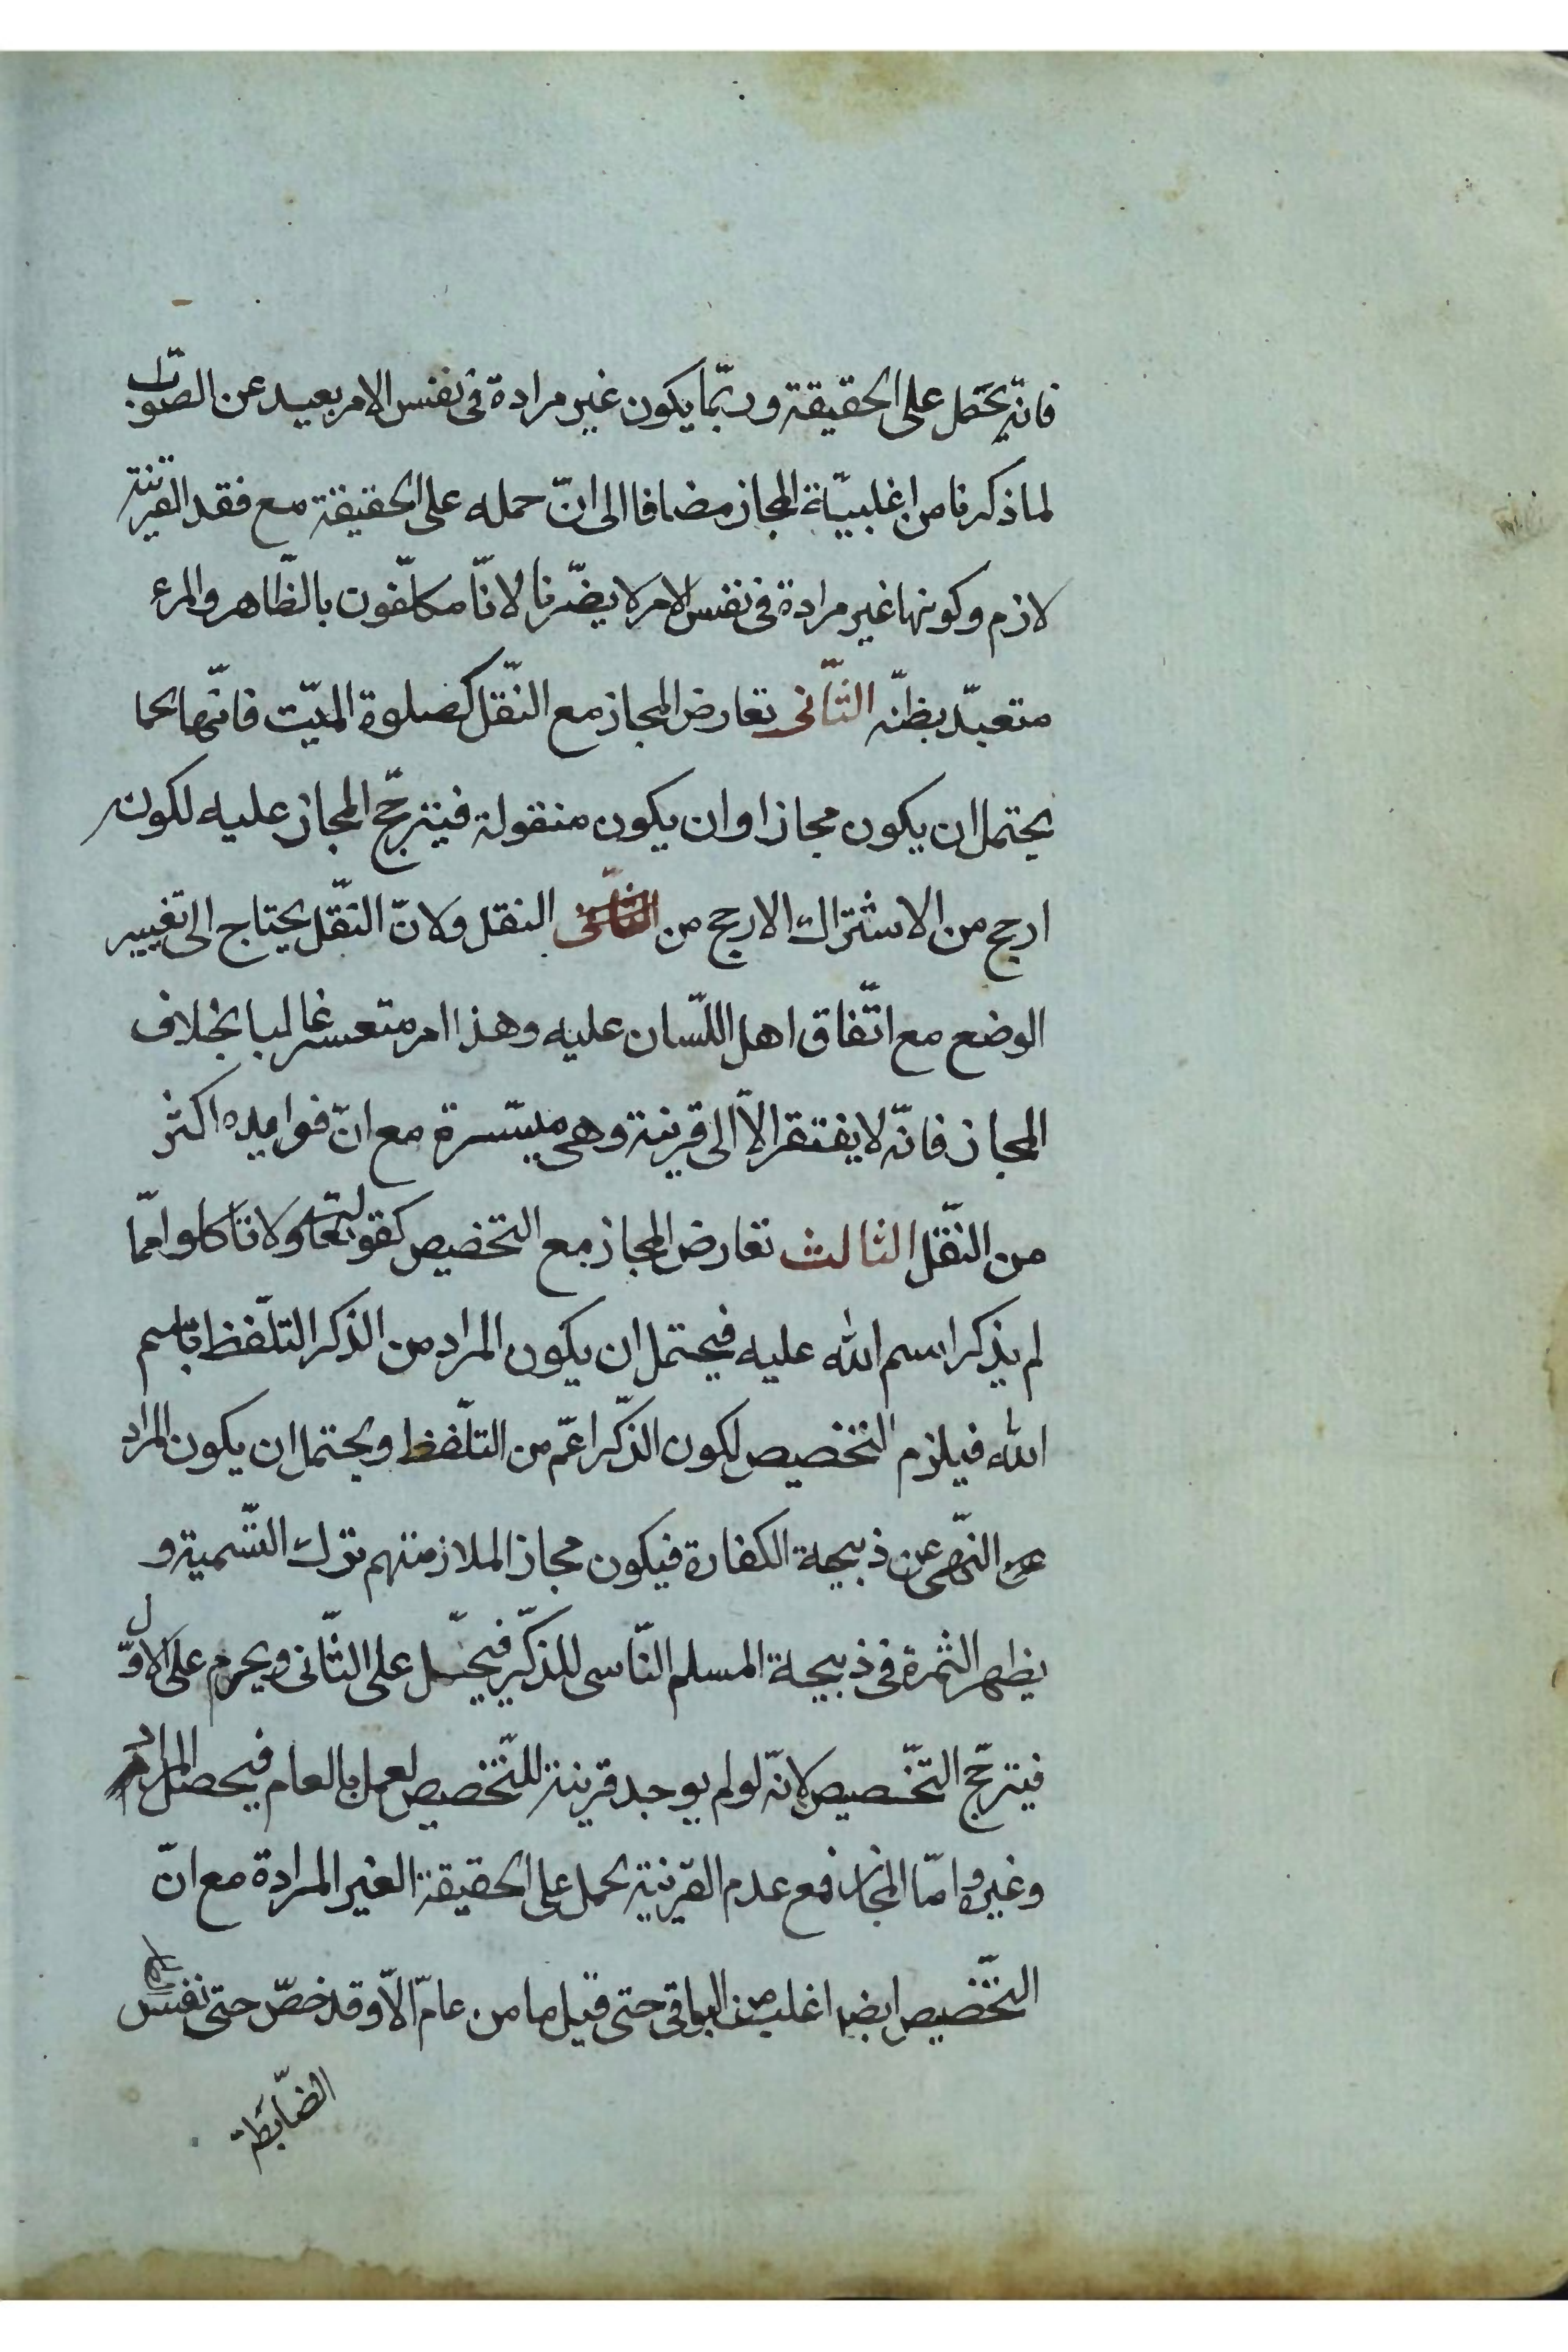 فانّه يحتمل على الحقيقة وربّما يكون غير مرادة فى نفس الامر بعيد عن الصّواب
لما ذكرنا من اغلبيّة المجاز مضافا الى انّ حمله على الحقيقة مع فقد القرينة
لازم وكونها غير مرادة فى نفس الامر لا يضّرنا لانّا مكلّفون بالظّاهر والمرء
متعبّد بظنّه الثّانى تعارض المجاز مع النّقل كصلوة الميّت فانّها كما
يحتمل ان يكون مجازا وان يكون منقولة فيترجّح المجاز عليه لكونه
ارجح من الاشتراك الارجح من النقل ولانّ النّقل يحتاج الى تغيير
الوضع مع اتّفاق اهل اللّسان عليه وهذا امر متعسر غالبا بخلاف
المجاز فانّه لا يفتقر الاّ الى قرينة وهى ميسّرة مع انّ فوايده اكثر
من النّقل الثالث تعارض المجاز مع التّخصيص كقوله تعالى ولا تاكلوا ممّا
لم يذكر اسم الله عليه فيحتمل ان يكون المراد من الذكر التلّفظ باسم
الله فيلزم التخصيص لكون الذّكر اعّم من التلّفظ ويحتمل ان يكون المراد
النّهى عن ذبيحة الكفارة فيكون مجازا لملازمتهم ترك التّسمية و
يظهر الثمرة فى ذبيحة المسلم النّاسى للذكّر فيحّل على الثّانى ويحرم على الاوّل
فيترجّح التّخصيص لانّه لو لم يوجد قرينة للتّخصيص لعمل بالعام فيحصل المراد
وغيره وامّا المجاز فمع عدم القرينة يحمل على الحقيقة الغير المرادة مع انّ
التّخصيص ايضا اغلب من البواقى حتى قيل ما من عامّ الاّ وقد خصّ حتى نفس
الضّابطة